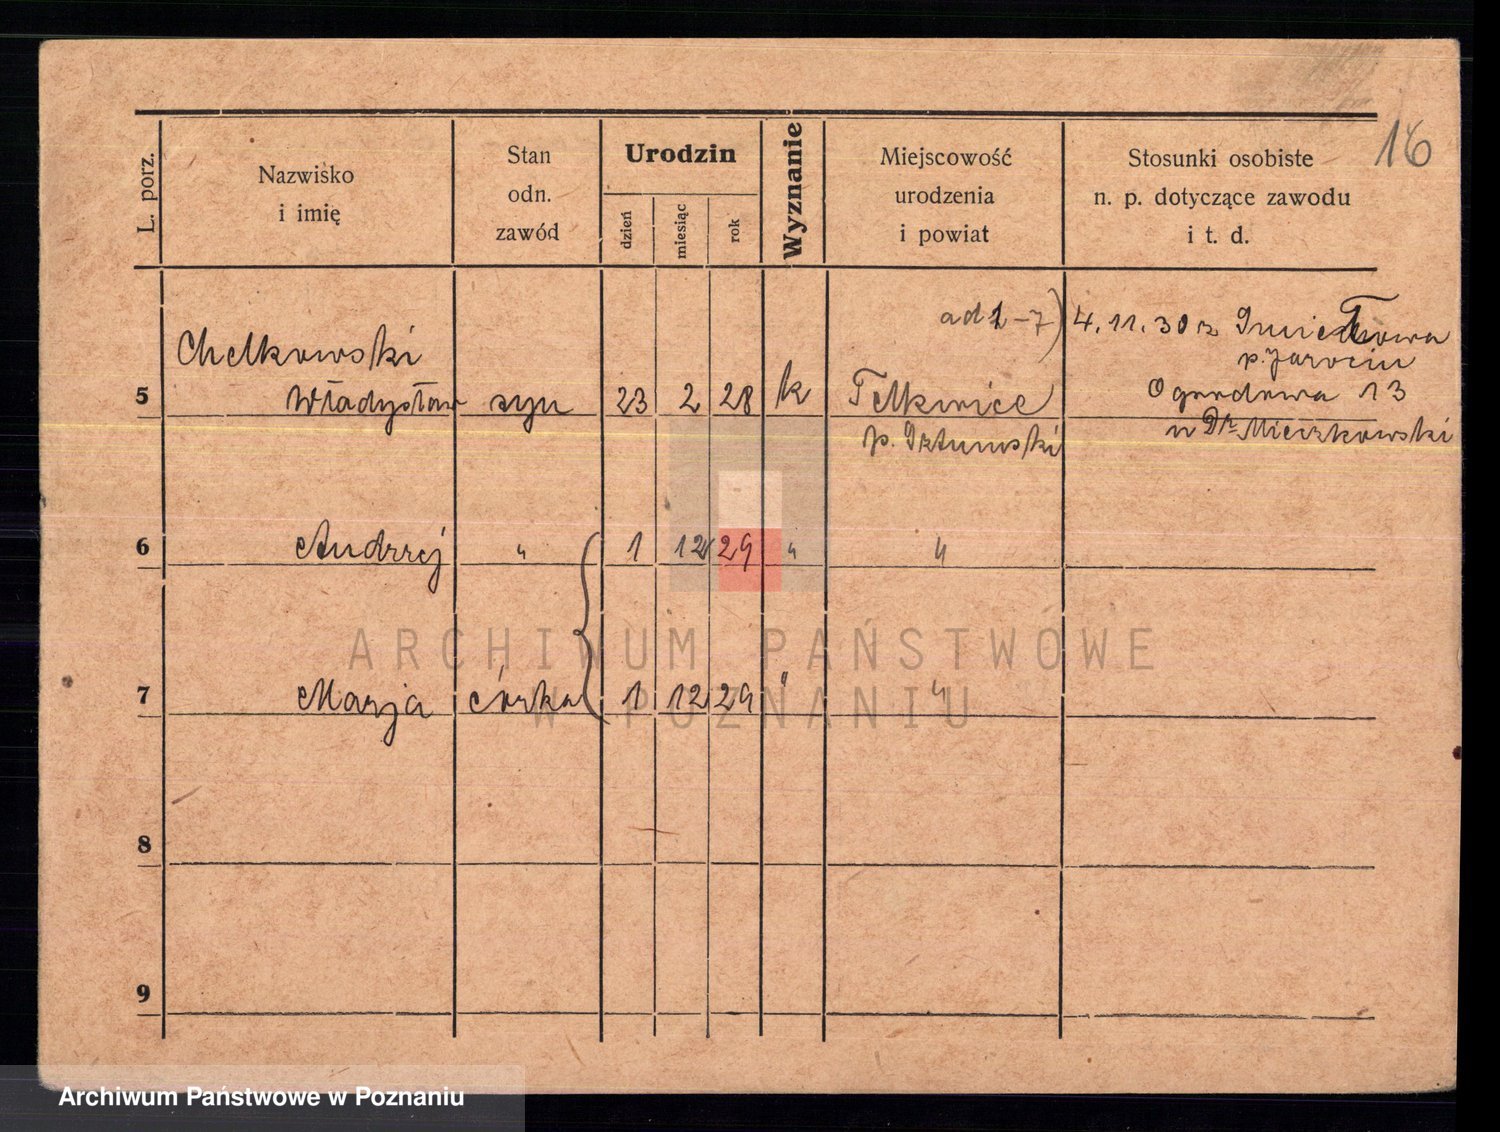 16
L. porz.
Nazwisko
i imię
Stan
odn.
zawód
Urodzin
dzień
miesiąc
rok
Wyznanie
Miejscowość
urodzenia
i powiat
Stosunki osobiste
n. p. dotyczące zawodu
i t. d.
ad 1-7) 4.11.30 z
Chełkowski
p. Jarocin
5 Władysław syn 23 2 28 k Telkwice Ogrodowa 13
p. Sztumski u Dr. Mieczkowski
6 Andrzej " 1 12 29 " "
7 Marja córka 1 12 29 " "
8
9
ARCHIWUM PAŃSTWOWE
W POZNANIU
Archiwum Państwowe w Poznaniu